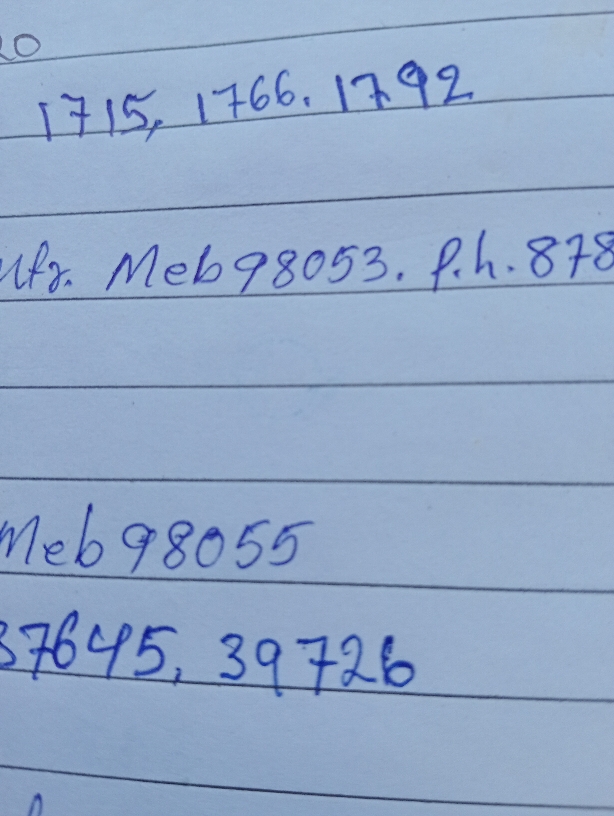 20
1715, 1766. 1792
Mfr. Meb98053. P.h. 878
Meb98055
37645, 39726